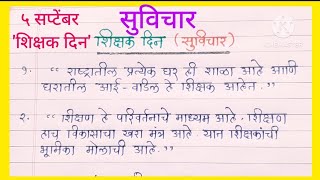 ५ सप्टेंबर
सुविचार
'शिक्षक दिन' शिक्षक दिन (सुविचार)
१. “ राष्ट्रातील प्रत्येक घर ही शाळा आहे आणि
घरातील 'आई - वडिल ते शिक्षक आहेत. ”
२. “ शिक्षण हे परिवर्तनाचे माध्यम आहे. शिक्षण
हाच विकासाचा खरा मंत्र आहे. यात शिक्षकांची
भूमिका मोलाची आहे. ”